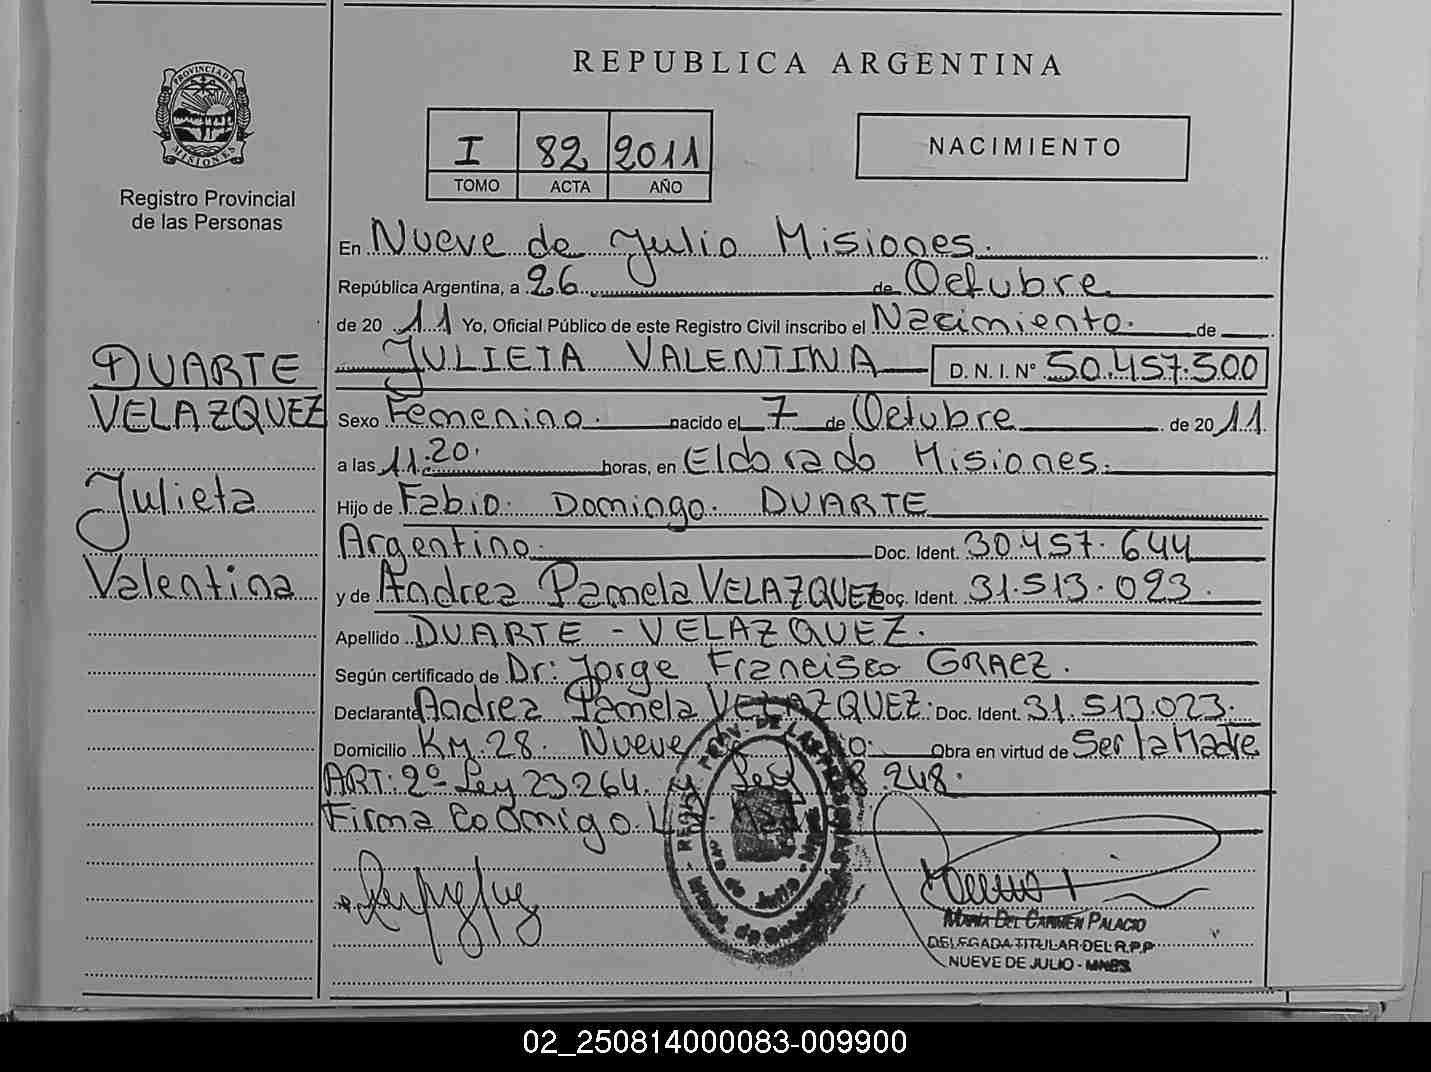 REPUBLICA ARGENTINA
PROVINCIA DE
MISIONES
Registro Provincial
de las Personas
I 82 2011
TOMO ACTA AÑO
NACIMIENTO
DUARTE
VELAZQUEZ
Julieta
Valentina
En Nueve de Julio Misiones.
República Argentina, a 26 de Octubre
de 20 11 Yo, Oficial Público de este Registro Civil inscribo el Nacimiento. de
JULIETA VALENTINA D. N. I. N° 50.457.500
Sexo Femenino. nacido el 7 de Octubre de 20 11
a las 11:20. horas, en Eldorado Misiones.
Hijo de Fabio. Domingo. DUARTE
Argentino. Doc. Ident. 30.457.644
y de Andrea Pamela VELAZQUEZ Doc. Ident. 31.513.023.
Apellido DUARTE - VELAZQUEZ.
Según certificado de Dr: Jorge Francisco GRAEZ.
Declarante Andrea Pamela VELAZQUEZ. Doc. Ident. 31.513.023.
Domicilio Km.28. Nueve Obra en virtud de Ser la Madre
ART: 2º Ley 23.264. y Ley 18.248.
Firma Conmigo.
MARIA DEL CARMEN PALACIO
DELEGADA TITULAR DEL R.P.P
NUEVE DE JULIO - MNES
02_250814000083-009900